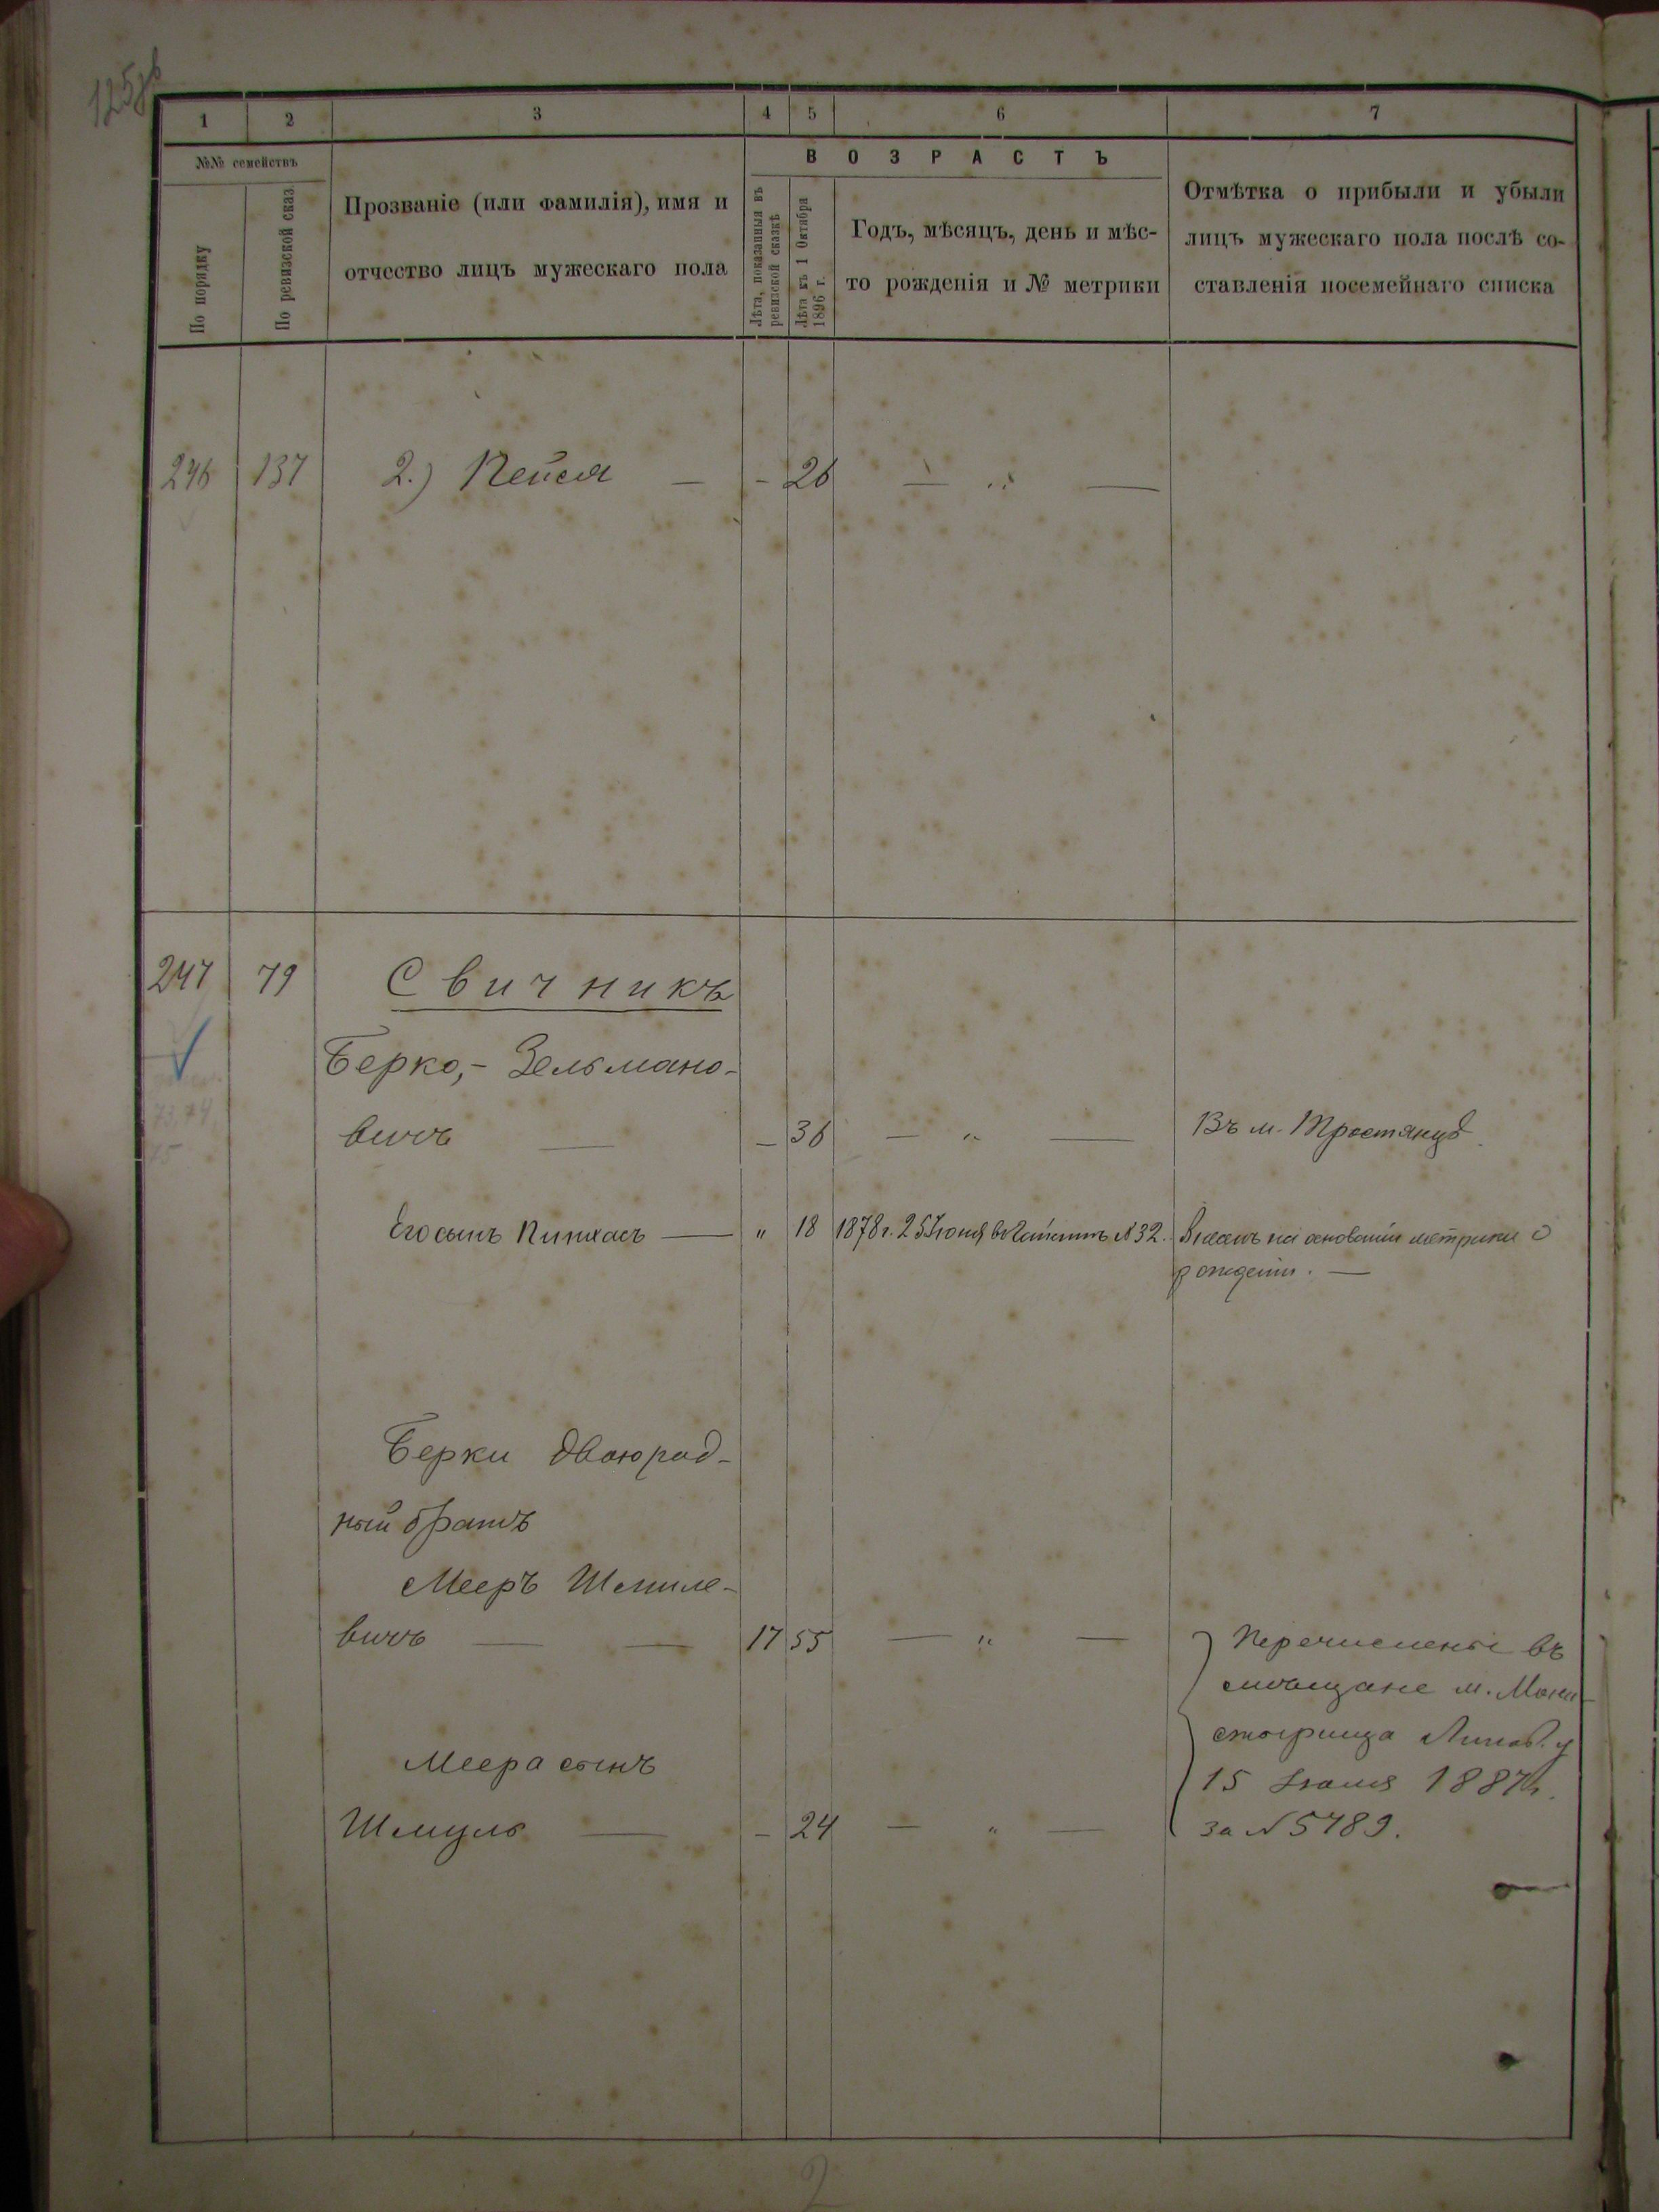 125об
1 2 3 4 5 6 7
№№ семействъ
По порядку
По ревизской сказ.
Прозваніе (или фамилія), имя и
отчество лицъ мужескаго пола
ВОЗРАСТЪ
Лѣта, показанныя въ
ревизской сказкѣ
Лѣта къ 1 Октября
1896 г.
Годъ, мѣсяцъ, день и мѣс-
то рожденія и № метрики
Отмѣтка о прибыли и убыли
лицъ мужескаго пола послѣ со-
ставленія посемейнаго списка
246 137 2.) Пейся — - 26 — „ —
247 79 Свичникъ
Берко,- Зельмано-
вичъ — - 36 — „ — Въ м. Тростянцѣ.
Его сынъ Пинхасъ — „ 18 1878 г. 25 Іюня № 32. на основаніи метрики о
рожденіи. —
Берки двоюрод-
ный братъ
Мееръ Шмиле-
вичъ — — 17 55 — „ — Перечислены въ
мѣщане м. Мона-
стырища Липов. у
Меера сынъ
15 1887 г.
Шмуль — - 24 — „ — за № 5789.
2